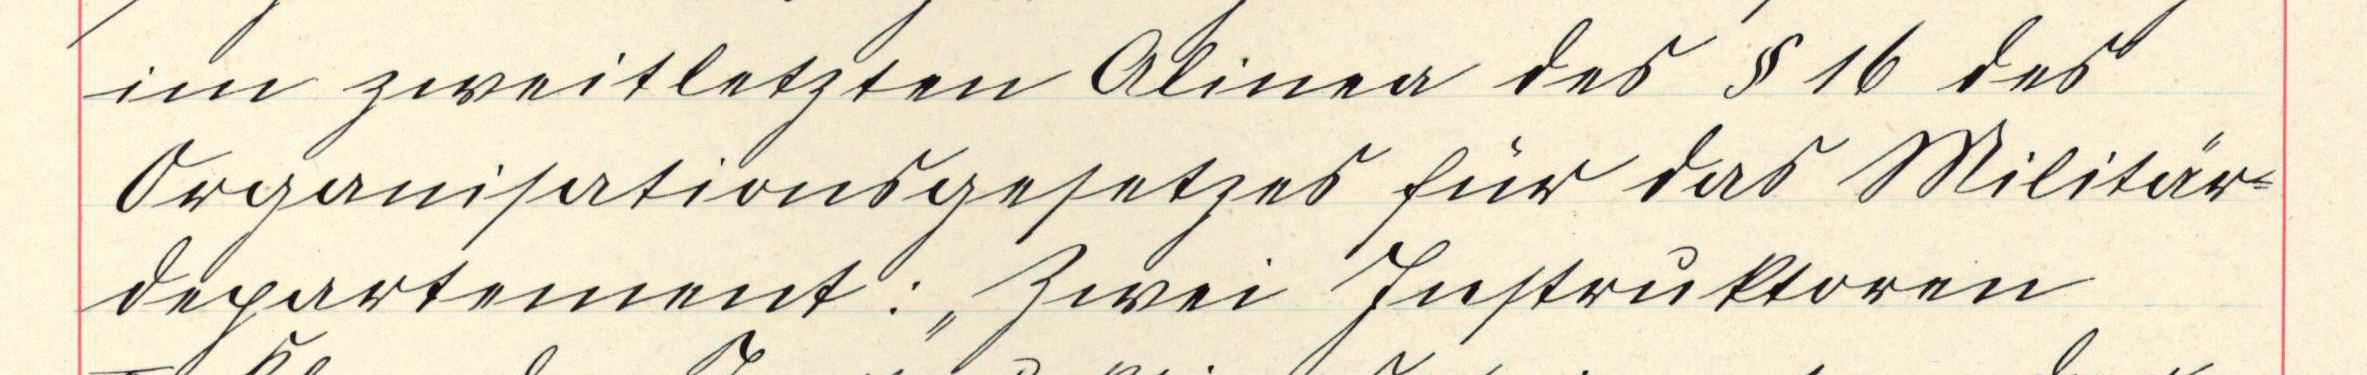 im zweitletzten Alinea des § 16 des
Organisationsgesetzes für das Militär-
departement: „Zwei Instruktoren